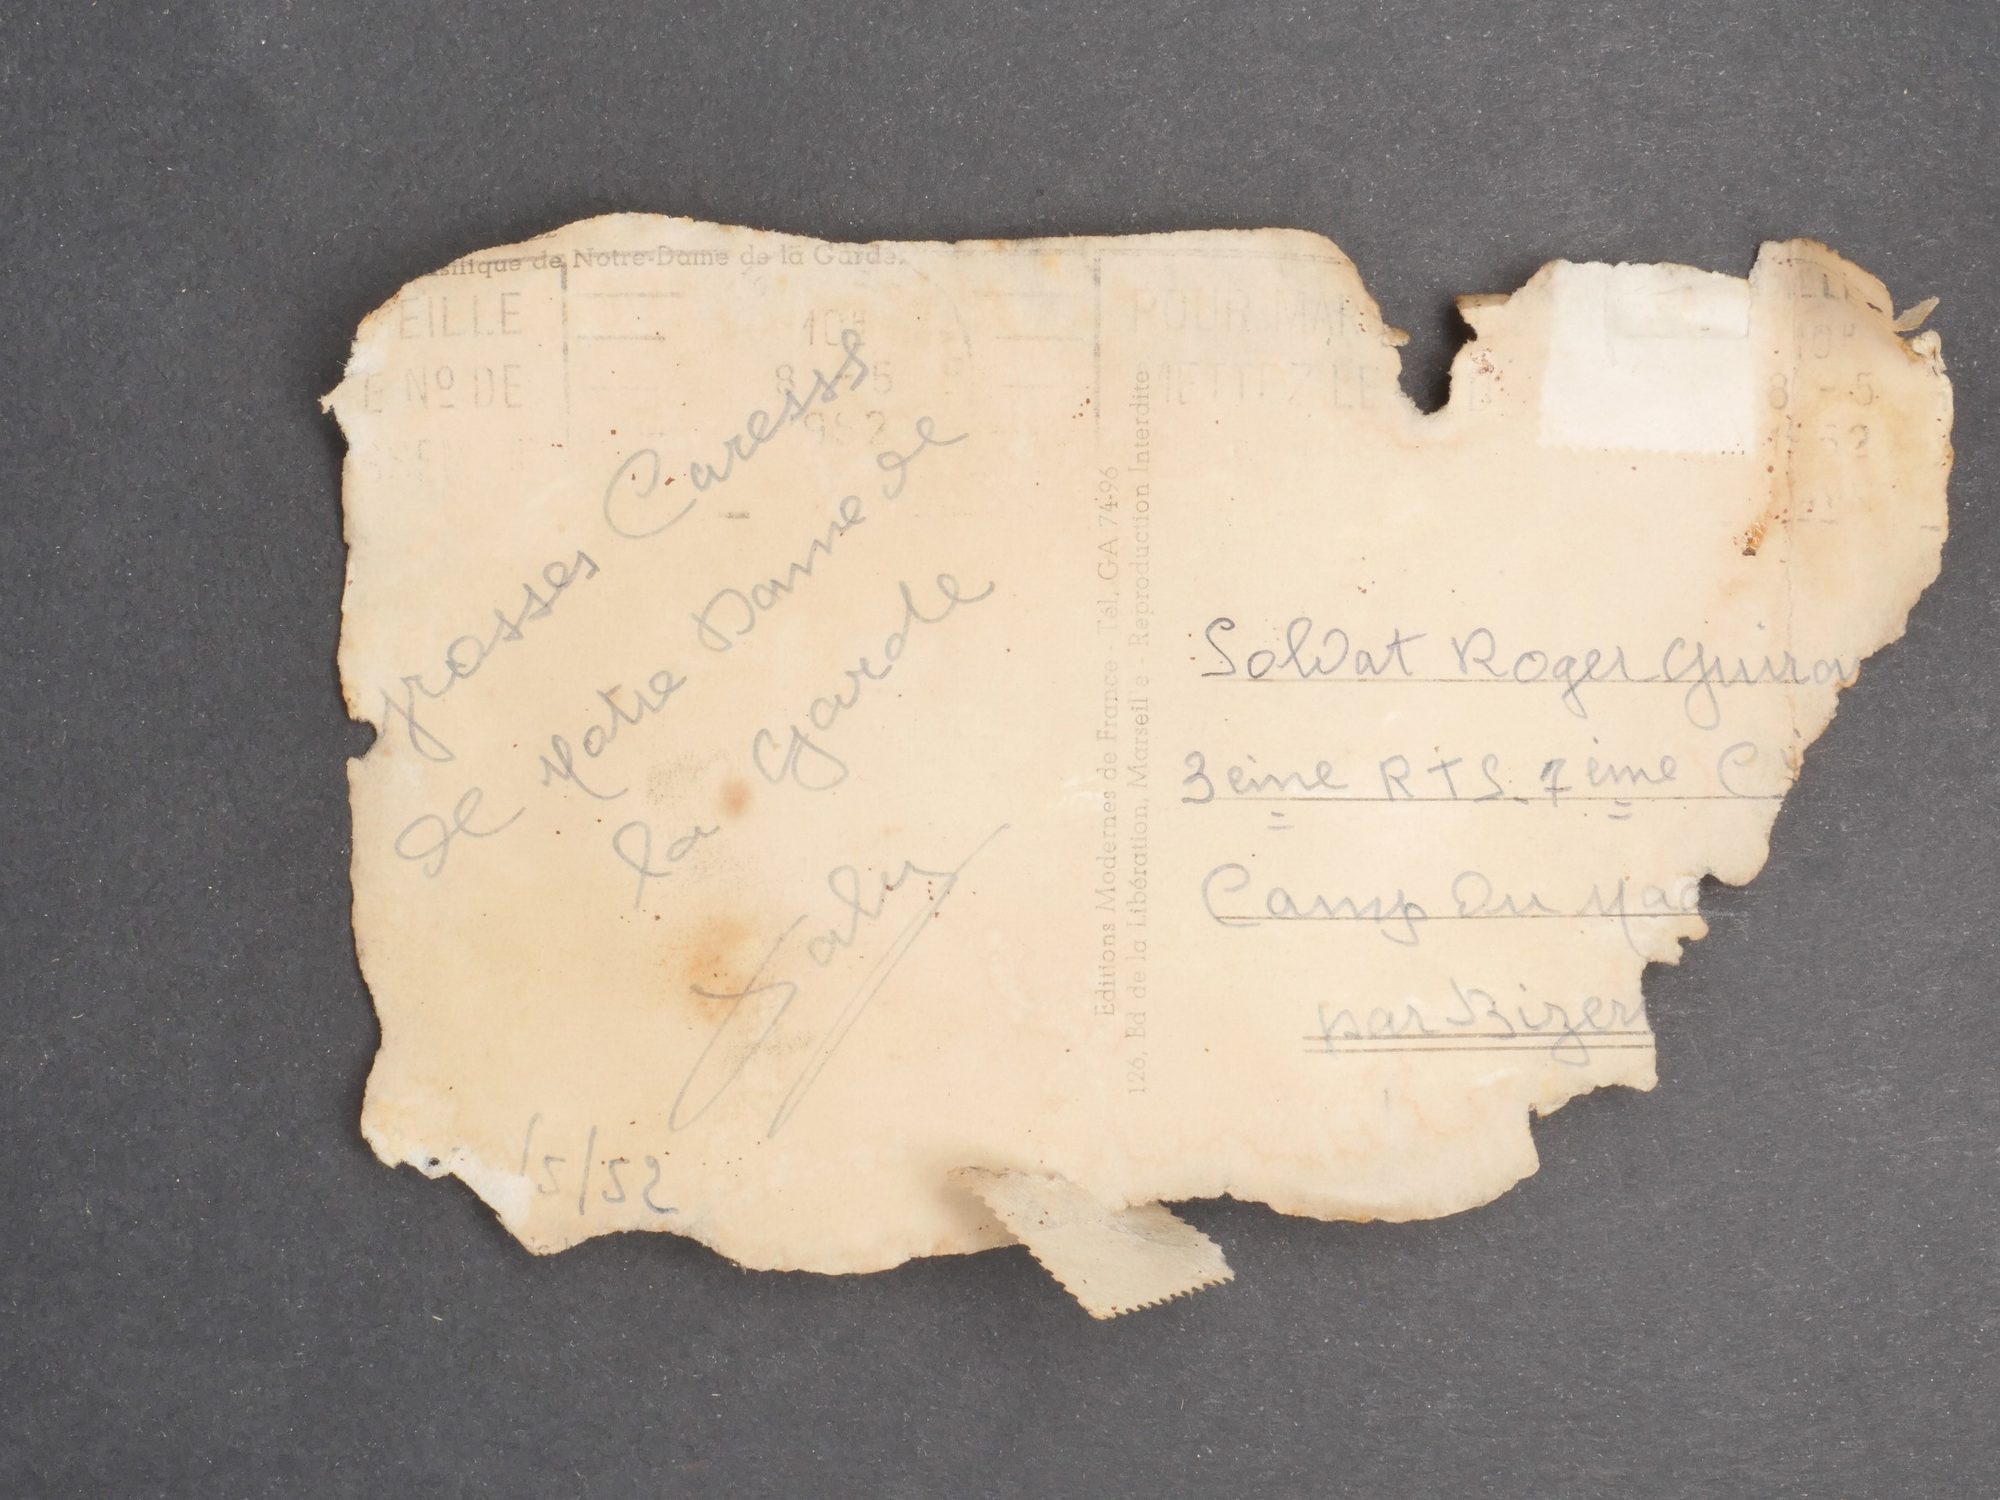 asilique de Notre-Dame de la Garde.
EILLE
E Nº DE
10H
8 - 5
POUR MAR
METTEZ LE
grosses Caresses
de Notre Dame de
la Garde
5/52
Editions Modernes de France - Tél. GA 74-96
126, Bd de la Libération, Marseille - Reproduction Interdite
10H
8 - 5
Soldat Roger Guirau
3eime RTS. 7eime C
Camp du Mad
par Bizer